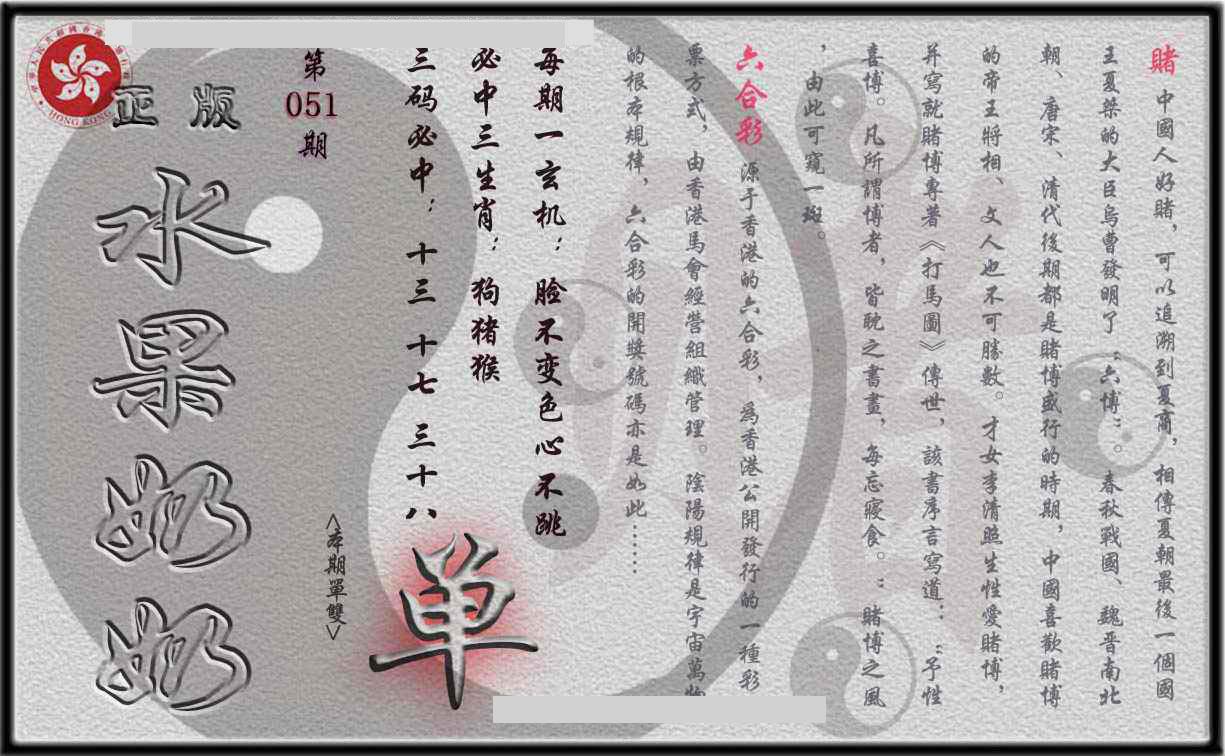 賭 中國人好賭，可以追溯到夏商，相傳夏朝最後一個國
王夏桀的大臣烏曹發明了“六博”。春秋戰國、魏晋南北
朝、唐宋、清代後期都是賭博盛行的時期，中國喜歡賭博
的帝王將相、文人也不可勝數。才女李清照生性愛賭博，
并寫就賭博專著《打馬圖》傳世，該書序言寫道：“予性
喜博。凡所謂博者，皆耽之晝晝，每忘寢食。”賭博之風
，由此可窺一斑。
六合彩 源于香港的六合彩，為香港公開發行的一種彩
票方式，由香港馬會經營組織管理。陰陽規律是宇宙萬物
的根本規律，六合彩的開獎號碼亦是如此……
每期一玄机：脸不变色心不跳
必中三生肖：狗猪猴
三码必中：十三 十七 三十八
单
<本期單雙>
第
051
期
正版
水果奶奶
HONG KONG